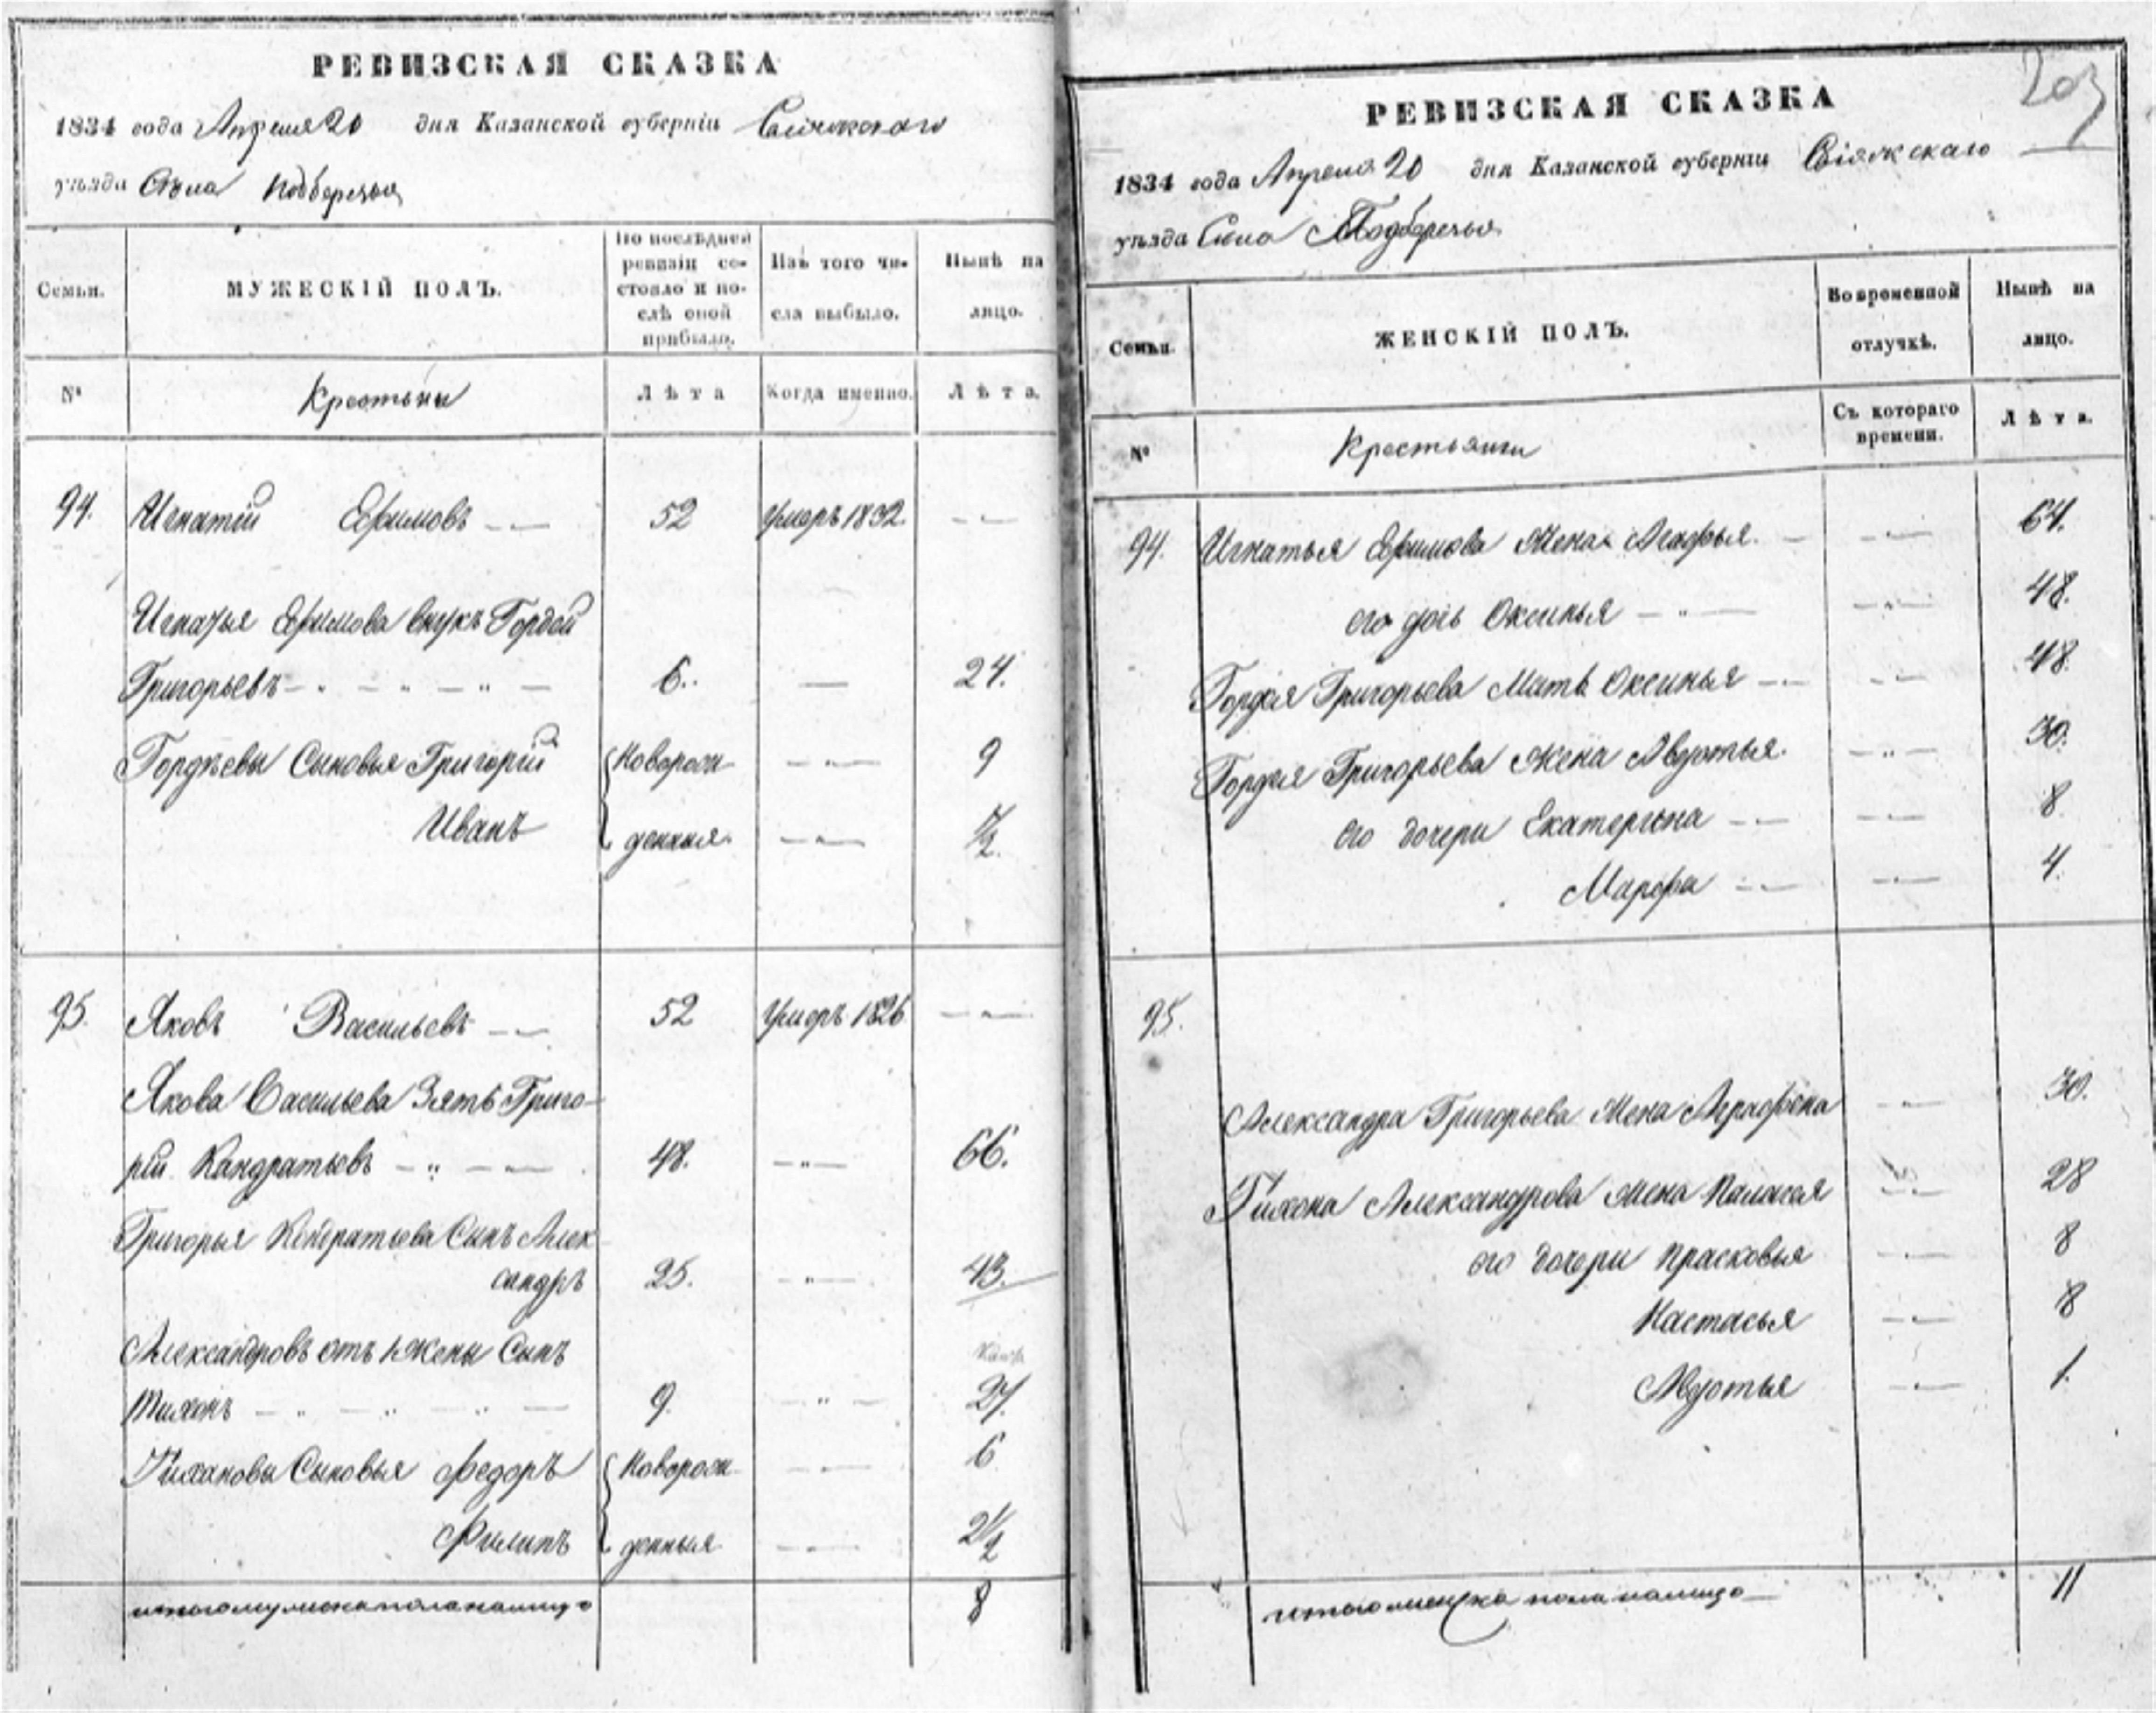 РЕВИЗСКАЯ СКАЗКА
1834 года Апреля 20 дня Казанской губерніи Свіяжскаго
уѣзда Села Подберезья
Семьи.
МУЖЕСКІЙ ПОЛЪ.
По послѣдней ревизіи состояло и послѣ оной прибыло.
Изъ того числа выбыло.
Нынѣ на лицо.
№
Крестьяны
Лѣта
Когда именно.
Лѣта.
94. Игнатій Ефимовъ 52 Умеръ 1832.
Игнатья Ефимова внукъ Гордей
Григорьевъ 6. 24.
Гордѣевы Сыновья Григорій Новорож 9
Иванъ денныя ½
95. Яковъ Васильевъ 52 Умеръ 1826
Якова Васильева Зять Григо-
рій Кандратьевъ 48. 66.
Григорья Кондратьева Сынъ Алек
сандръ 25. 43.
Александровъ отъ 1 жены Сынъ
Тихонъ 9. 27.
Тихановы Сыновья Федоръ Новорож 6
Филипъ денныя 2½
итого мужска пола на лицо 8
203
РЕВИЗСКАЯ СКАЗКА
1834 года Апреля 20 дня Казанской губерніи Свіяжскаго
уѣзда Села Подберезья
Семьи.
ЖЕНСКІЙ ПОЛЪ.
Во временной отлучкѣ.
Нынѣ на лицо.
№
Крестьянки
Съ котораго времени.
Лѣта.
94. Игнатья Ефимова Жена Агафья. 64.
его дочь Оксинья 48.
Гордея Григорьева Мать Оксинья 48.
Гордея Григорьева Жена Авдотья. 30.
его дочери Екатерина 8.
Марфа 4.
95.
Александра Григорьева Жена Аграфена 30.
Тихона Александрова Жена Паласея 28
его дочери Прасковья 8
Настасья 8
Авдотья 1.
итого женска пола на лицо 11